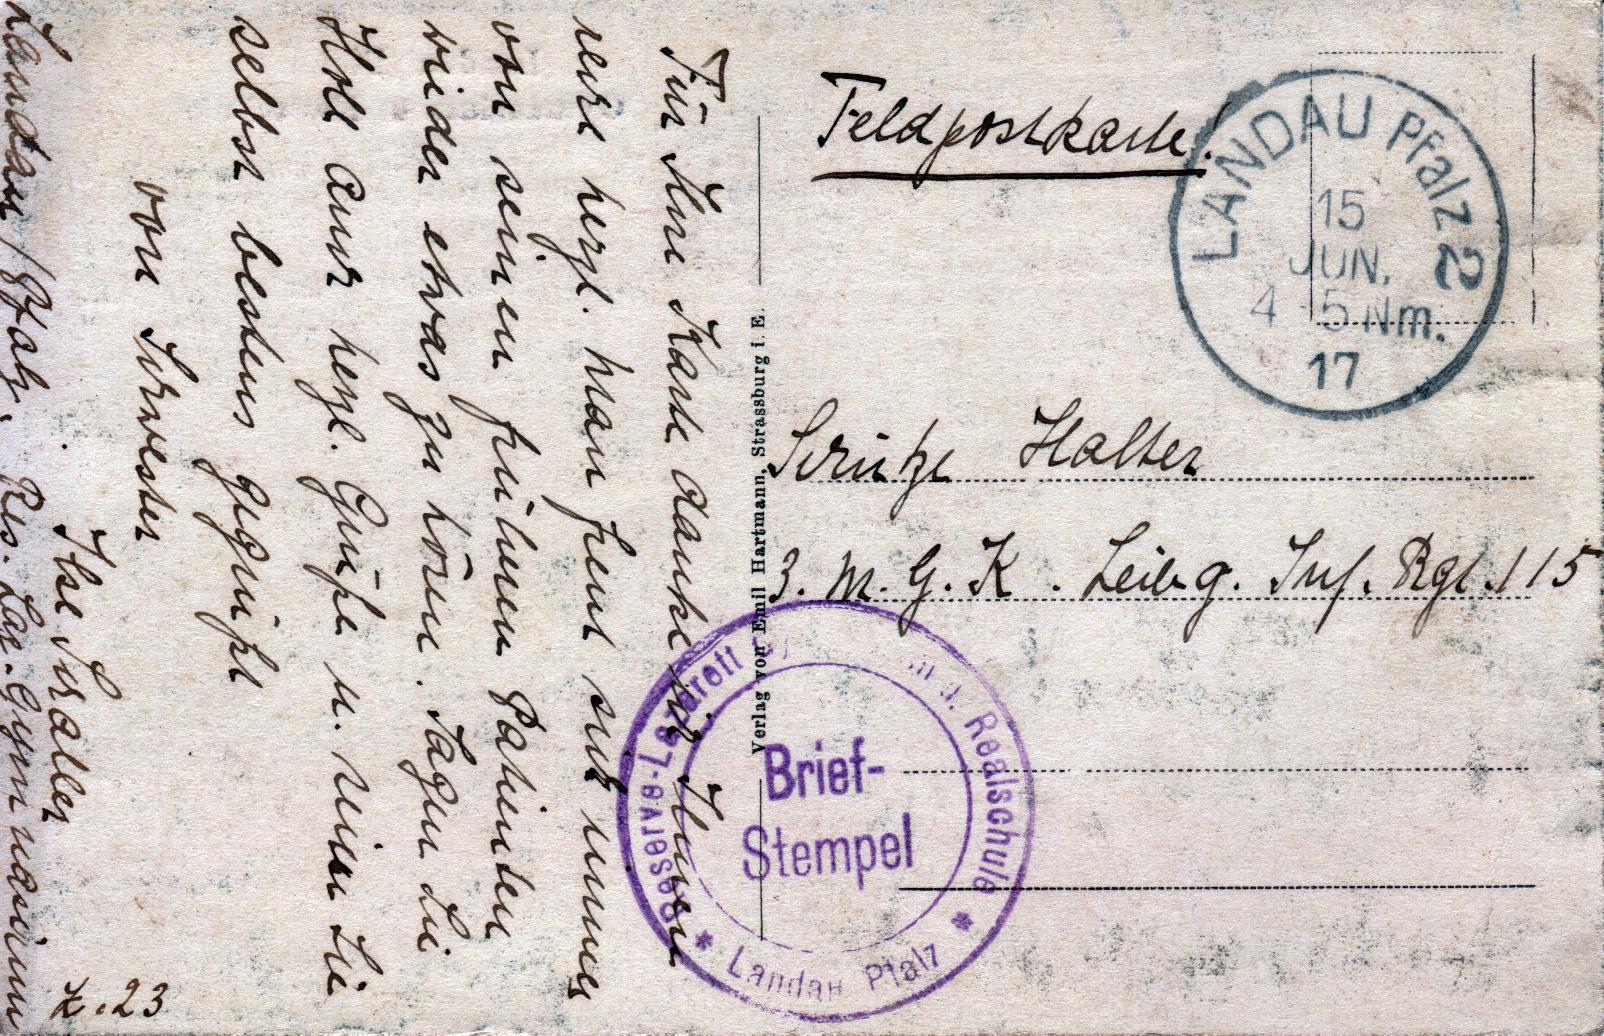 Feldpostkarte!
LANDAU Pfalz 2
15
JUN.
4-5 Nm.
17
Schütze Halter
3. M. G. K. Leibg. Inf. Rgt. 115
Verlag von Emil Hartmann, Strassburg i. E.
Reserve-Lazarett u. Realschule
Brief-
Stempel
* Landau Pfalz *
Für Ihre Karte danke ich Ihnen
recht herzl. Man freut sich immer
von seinen früheren Patienten
wieder etwas zu hören. Sagen Sie
Holl auch herzl. Grüße u. seien Sie
selbst bestens gegrüßt
von Schwester
Ilse
Landau/Pfalz, Res. Laz. Gymnasium
Z. 23